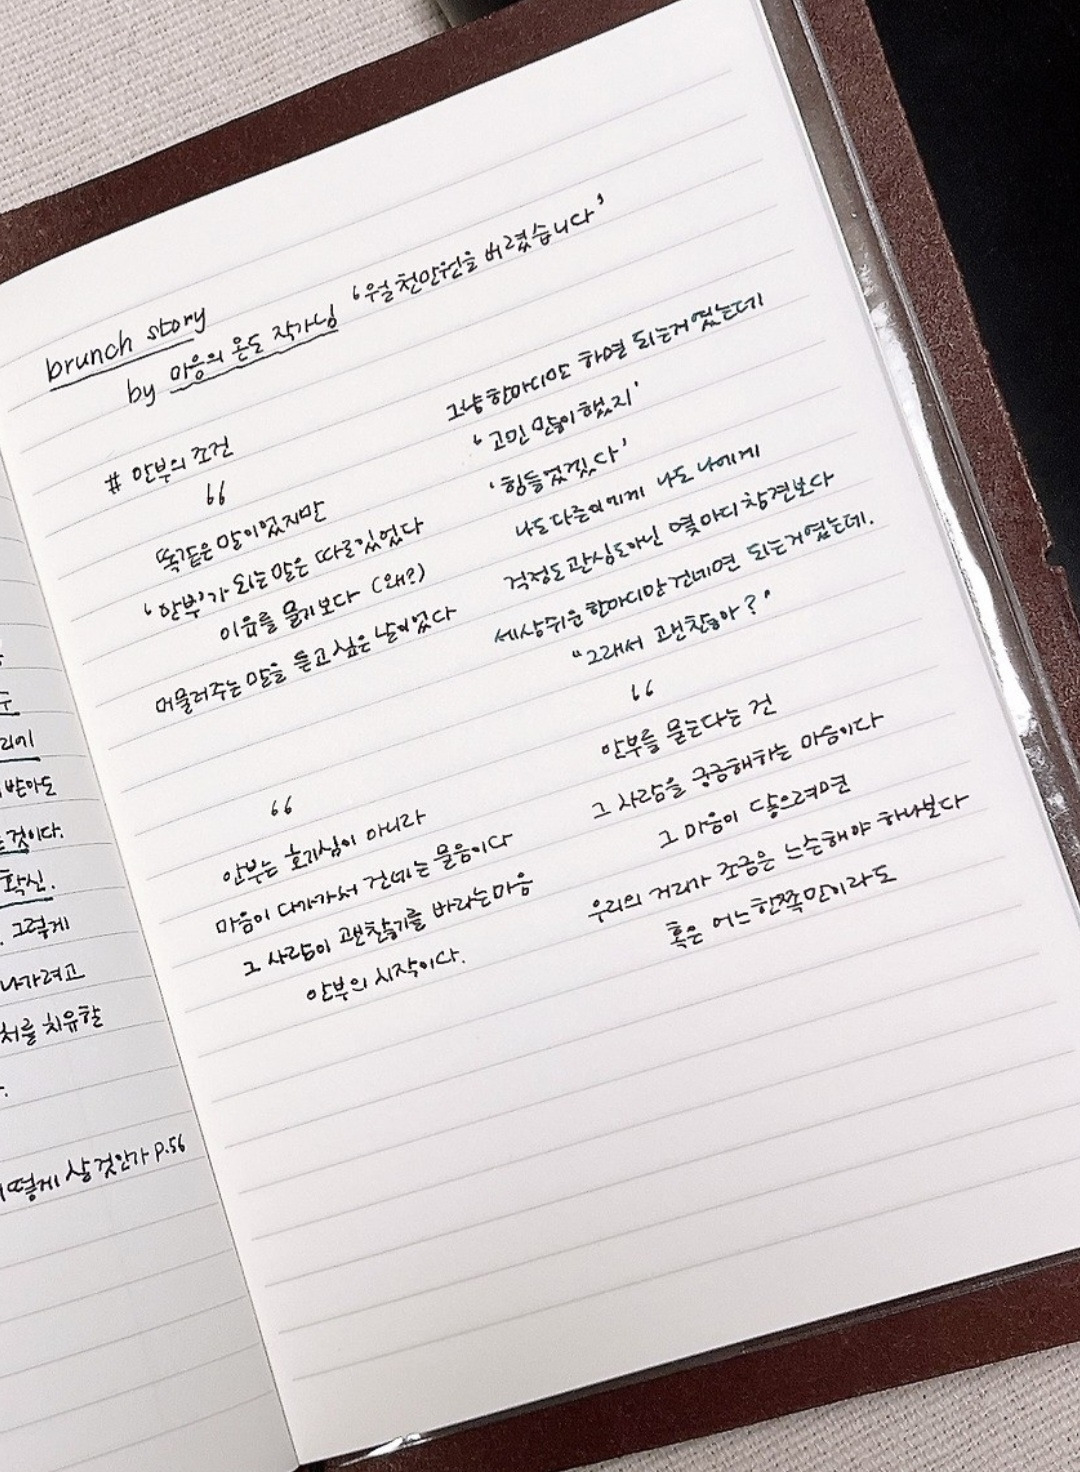 brunch story
by 마음의 온도 작가님 '월 천만원을 버렸습니다'
# 안부의 조건
"
똑같은 말이었지만
'안부'가 되는 말은 따로 있었다
이유를 묻기보다 (왜?)
머물러주는 말을 듣고 싶은 날이었다
"
안부는 호기심이 아니라
마음이 다가가서 건네는 물음이다
그 사람이 괜찮기를 바라는 마음
안부의 시작이다.
그냥 한마디만 하면 되는거였는데
'고민 많이 했지'
'힘들었겠다'
나도 다른이에게 나도 나에게
걱정도 관심도 아닌 몇 마디 참견보다
세상 쉬운 한마디만 건네면 되는거였는데.
"그래서 괜찮아?"
"
안부를 묻는다는 건
그 사람을 궁금해하는 마음이다
그 마음이 닿으려면
우리의 거리가 조금은 느슨해야 하나보다
혹은 어느 한쪽만이라도
받아도
것이다.
확신.
그렇게
나가려고
처를 치유할
떻게 살 것인가 P.56